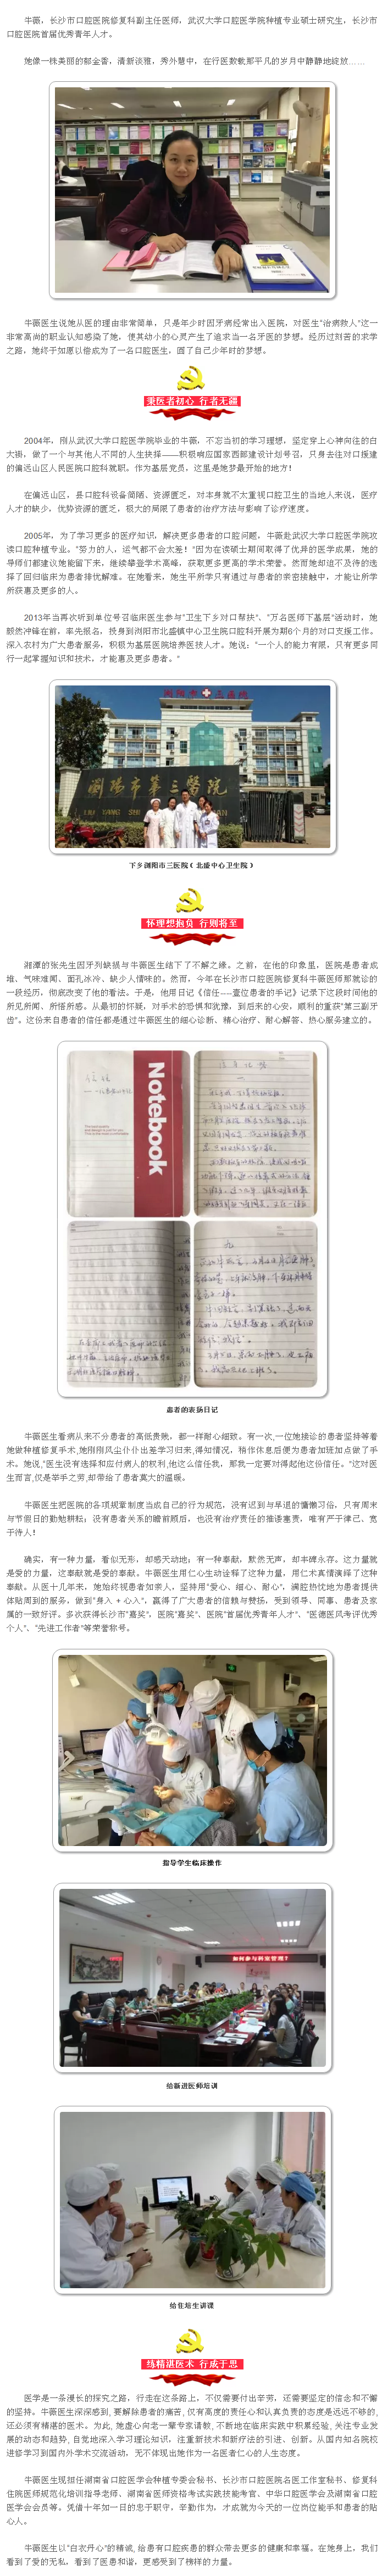 牛薇，长沙市口腔医院修复科副主任医师，武汉大学口腔医学院种植专业硕士研究生，长沙市
口腔医院首届优秀青年人才。
她像一株美丽的郁金香，清新淡雅，秀外慧中，在行医数载那平凡的岁月中静静地绽放……
牛薇医生说她从医的理由非常简单，只是年少时因牙病经常出入医院，对医生“治病救人”这一
非常高尚的职业认知感染了她，使其幼小的心灵产生了追求当一名牙医的梦想。经历过刻苦的求学
之路，她终于如愿以偿成为了一名口腔医生，圆了自己少年时的梦想。
秉医者初心 行者无疆
2004年，刚从武汉大学口腔医学院毕业的牛薇，不忘当初的学习理想，坚定穿上心神向往的白
大褂，做了一个与其他人不同的人生抉择——积极响应国家西部建设计划号召，只身去往对口援建
的偏远山区人民医院口腔科就职。作为基层党员，这里是她梦最开始的地方！
在偏远山区，县口腔科设备简陋、资源匮乏，对本身就不太重视口腔卫生的当地人来说，医疗
人才的缺少，优势资源的匮乏，极大的局限了患者的治疗方法与影响了诊疗速度。
2005年，为了学习更多的医疗知识，解决更多患者的口腔问题，牛薇赴武汉大学口腔医学院攻
读口腔种植专业。“努力的人，运气都不会太差！”因为在读硕士期间取得了优异的医学成果，她的
导师们都建议她能留下来，继续攀登学术高峰，获取更多更高的学术荣誉。然而她却迫不及待的选
择了回归临床为患者排忧解难。在她看来，她生平所学只有通过与患者的亲密接触中，才能让所学
所获惠及更多的人。
2013年当再次听到单位号召临床医生参与“卫生下乡对口帮扶”、“万名医师下基层”活动时，她
毅然冲锋在前，率先报名，投身到浏阳市北盛镇中心卫生院口腔科开展为期6个月的对口支援工作。
深入农村为广大患者服务，积极为基层医院培养医技人才。她说：“一个人的能力有限，只有更多同
行一起掌握知识和技术，才能惠及更多患者。”
浏阳市三医院
浏阳市第三医院
LIU YANG SHI
下乡浏阳市三医院（北盛中心卫生院）
怀理想抱负 行则将至
湘潭的张先生因牙列缺损与牛薇医生结下了不解之缘。之前，在他的印象里，医院是患者成
堆、气味难闻、面孔冰冷、缺少人情味的。然而，今年在长沙市口腔医院修复科牛薇医师那就诊的
一段经历，彻底改变了他的看法。于是，他用日记《信任——壹位患者的手记》记录下这段时间他的
所见所闻、所悟所感。从最初的怀疑，对手术的恐惧和犹豫，到后来的心安，顺利的重获“第三副牙
齿”。这份来自患者的信任都是通过牛薇医生的细心诊断、精心治疗、耐心解答、热心服务建立的。
Notebook
患者的表扬日记
牛薇医生看病从来不分患者的高低贵贱，都一样耐心细致。有一次,一位她接诊的患者坚持等着
她做种植修复手术,她刚刚风尘仆仆出差学习归来,得知情况，稍作休息后便为患者加班加点做了手
术。她说,“医生没有选择和应付病人的权利,他这么信任我，那我一定要对得起他这份信任。”这对医
生而言,仅是举手之劳,却带给了患者莫大的温暖。
牛薇医生把医院的各项规章制度当成自己的行为规范，没有迟到与早退的慵懒习俗，只有周末
与节假日的勤勉耕耘；没有患者关系的瞻前顾后，也没有治疗责任的推诿塞责，唯有严于律己、宽
于待人！
确实，有一种力量，看似无形，却感天动地；有一种奉献，默然无声，却丰碑永存。这力量就
是爱的力量，这奉献就是爱的奉献。牛薇医生用仁心生动诠释了这种力量，用仁术真情演绎了这种
奉献。从医十几年来，她始终视患者如亲人，坚持用“爱心、细心、耐心”，满腔热忱地为患者提供
体贴周到的服务，做到“身入 + 心入”，赢得了广大患者的信赖与赞扬，受到领导、同事、患者及家
属的一致好评。多次获得长沙市“嘉奖”、医院“嘉奖”、医院“首届优秀青年人才”、“医德医风考评优秀
个人”、“先进工作者”等荣誉称号。
指导学生临床操作
如何参与科室管理？
给新进医师培训
给住培生讲课
练精湛医术 行成于思
医学是一条漫长的探究之路，行走在这条路上，不仅需要付出辛劳，还需要坚定的信念和不懈
的坚持。牛薇医生深深感到, 要解除患者的痛苦, 仅有高度的责任心和认真负责的态度是远远不够的,
还必须有精湛的医术。为此, 她虚心向老一辈专家请教, 不断地在临床实践中积累经验, 关注专业发
展的动态和趋势, 自觉地深入学习理论知识，注重新技术和新疗法的引进、创新。从国内知名院校
进修学习到国内外学术交流活动，无不体现出她作为一名医者仁心的人生态度。
牛薇医生现担任湖南省口腔医学会种植专委会秘书、长沙市口腔医院名医工作室秘书、修复科
住院医师规范化培训指导老师、湖南省医师资格考试实践技能考官、中华口腔医学会及湖南省口腔
医学会会员等。凭借十年如一日的忠于职守，辛勤作为，才成就为今天的一位岗位能手和患者的贴
心人。
牛薇医生以“白衣丹心”的精诚, 给患有口腔疾患的群众带去更多的健康和幸福。在她身上，我们
看到了爱的无私，看到了医患和谐，更感受到了榜样的力量。